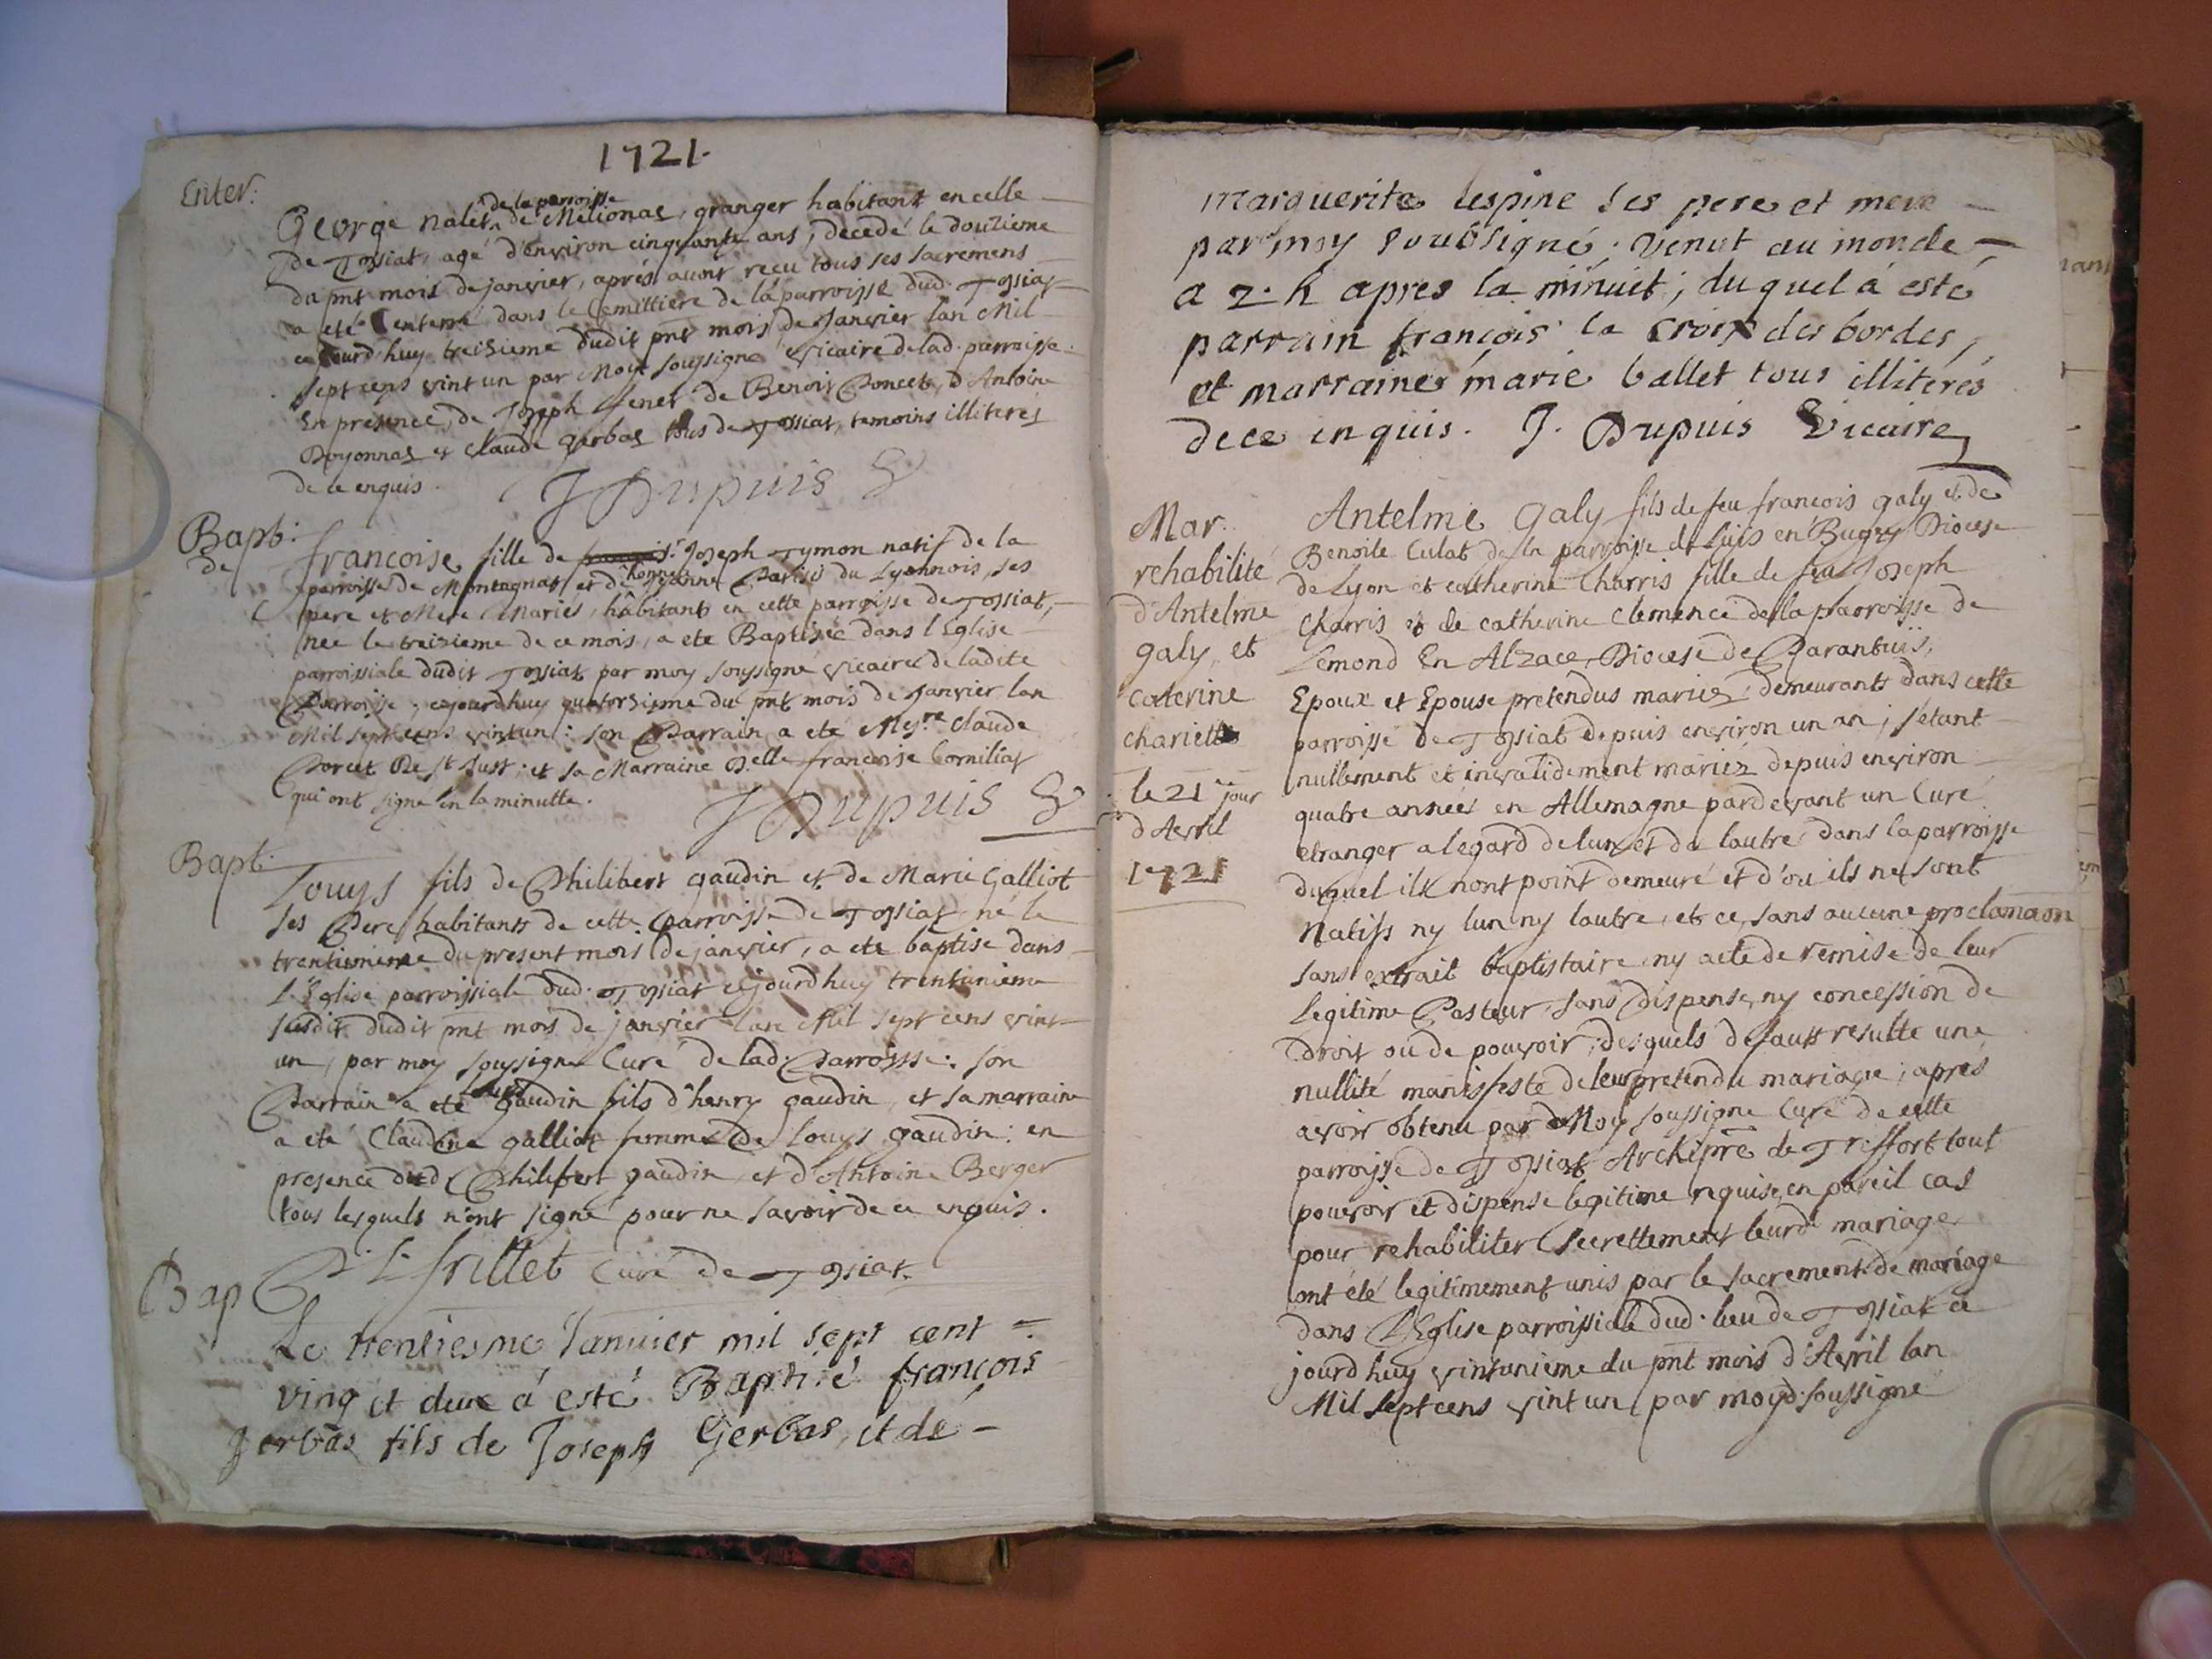 1721.
Enter:
de la parroisse
George nalet de Melionas, granger habitant en celle
de Tossiat, agé d'environ cinquante ans, decedé le douzieme
du pnt mois de janvier, aprés avoir recu tous ses sacremens
a eté enterré dans le Cemittiere de la parroisse dud. Tossiat
ce jourd'huy treizieme dudit pnt mois de Janvier lan Mil
sept cens vint un par Moy soussigné vicaire de lad. parroisse.
En presence, de Joseph fenet de Benoit Poncet, d'Antoine
Doyonnas et Claude Gerbas tous de Tossiat, temoins illiterés
de ce enquis.
J Dupuis V
Bapt:
de
francoise fille de Joseph Tymon natif de la
parroisse de Montagnat et d'honne Parisis du Lyonnois, ses
pere et Mere Mariés, hâbitants en cette parroisse de Tossiat,
née le treizieme de ce mois, a eté Baptisée dans l'Eglise
parroissiale dudit Tossiat par moy soussigné vicaire de ladite
Parroisse, cejourd'huy quatorsieme du pnt mois de Janvier lan
Mil sept cens vint un: son Parrain a eté Messre Claude
Porcet De St Just; et sa Marraine Delle francoise Cornillat
qui ont signé en la minutte.
J Dupuis V
Bapt:
Louys fils de Philibert gaudin et de Marie Galliot
ses Pere habitants de cette parroisse de Tossiat né le
trentiemieme du present mois de janvier, a eté baptisé dans
l'Eglise parroissiale dud. Tossiat cejourdhuy trentunieme
susdit dudit pnt mois de janvier lan Mil sept cens vint
un, par moy soussigné Curé de lad. Parroisse: son
Parrain a eté louys gaudin fils d'henry gaudin, et sa marraine
a eté Claudine galliot femme de Louys gaudin: en
presence dud Philibert gaudin, et d'Antoine Berger
tous lesquels n'ont signé pour ne savoir de ce enquis.
frillet Curé de Tossiat.
Bap
Le trentiesme Janvier mil sept cent
ving et deux á esté Baptisé françois
Gerbas fils de Joseph Gerbas, et de
marguerite lespine ses pere et mere
par moy soubsigné. Venut au monde
a 2. h apres la minuit; duquel á esté
parrain françois la Croix des bordes,
et marraine marie ballet tous illiterés
de ce inquis. J. Dupuis Vicaire
Mar.
rehabilité
d'Antelme
galy, et
Caterine
chariette
le 21me jour
d'Avril
1721
Antelme galy fils de feu francois galy et de
Benoite Culat de la parroisse de Luis en Bugey Diocese
de Lyon et catherine Charris fille de feu Joseph
Charris et de catherine Clemence de la parroisse de
Lemond En Alzace, Diocese de Parantuis,
Epoux et Epouse pretendus mariez, demeurants dans cette
parroisse de Tossiat depuis environ un an; s'etant
nullement et invalidement mariéz depuis environ
quatre années en Allemagne pardevant un Curé
etranger a legard de lun et de lautre, dans la parroisse
duquel ils nont point demeuré et d'où ils ne sont
natifs ny lun ny lautre, et ce, sans aucune proclamaon
sans extrait baptistaire, ny acte de remise de leur
Legitime Pasteur, sans dispense, ny concession de
droit ou de pouvoir; desquels defauts resulte une
nullité manifeste de leur pretendu mariage; apres
avoir obtenu par Moy soussigné Curé de cette
parroisse de Tossiat Archipre de Treffort tout
pouvoir et dispense legitime requise, en pareil cas
pour rehabiliter secrettement leurd. mariage
ont été legitimement unis par le sacrement de mariage
dans l'Eglise parroissiale dud. lieu de Tossiat ce
jourd'huy vintunieme du pnt mois d'Avril lan
Mil sept cens vint un par moyd. soussigné